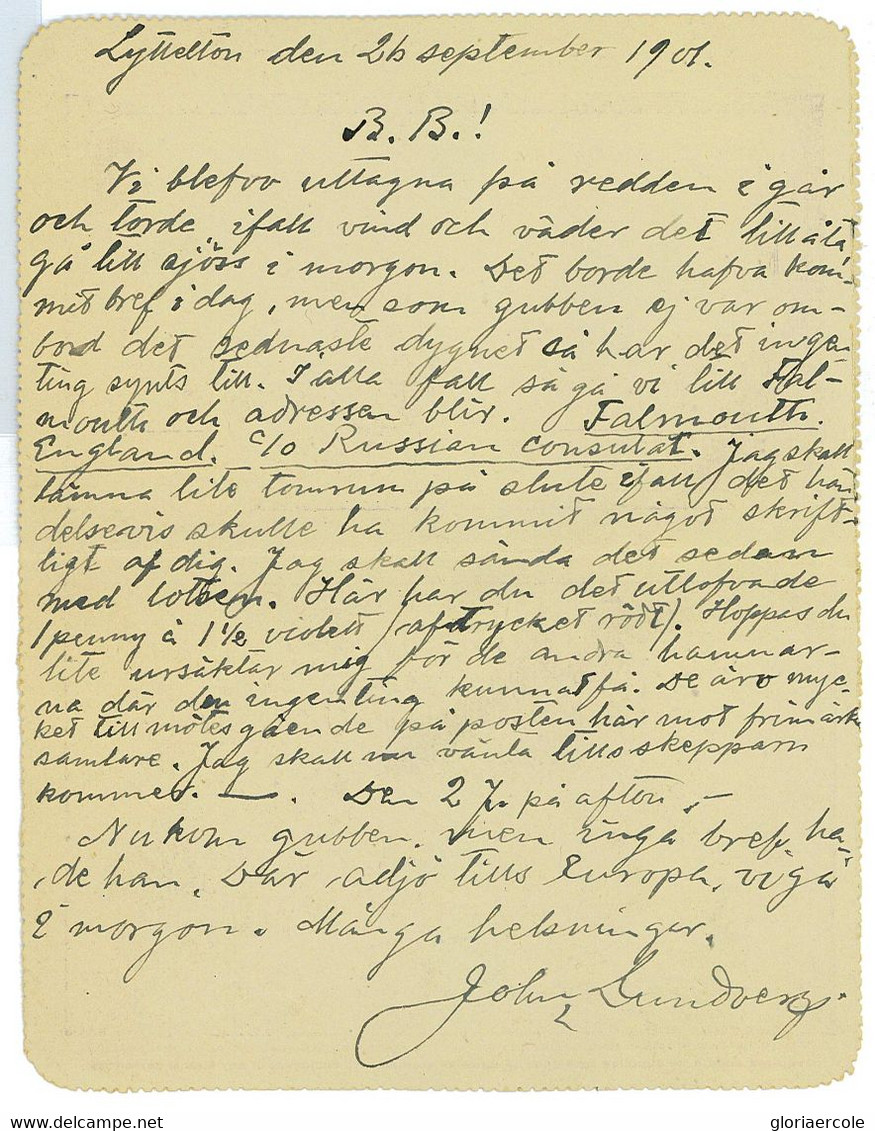 Lyttelton den 26 september 1901.
B. B.!
Vi blefvo uttagna på redden i går
och torde ifall vind och väder det tillåta,
gå till sjöss i morgon. Det borde hafva kom-
mit bref i dag, men som gubben ej var om-
bord det sednaste dygnet så har det ingen
ting synts till. I alla fall så gå vi till Fal-
mouth och adressen blir. Falmouth.
England. c/o Russian Consulat. Jag skall
lämna lite tomrum på slute ifall det hän
delsevis skulle ha kommit något skrift-
ligt af dig. Jag skall sända det sedan
med lotsen. Här har du det utlofvade
1 penny à 1½ violett (aftrycket rödt). Hoppas du
lite ursäktar mig för de andra hamnar-
na där den ingenting kunnat få. De äro myc-
ket tillmötesgående på posten här mot frimärks
samlare. Jag skall nu vänta tills skepparn
kommer. —. Den 27. på afton.—
Nu kom gubben, men inga bref ha-
de han. Där adjö tills Europa, vi gå
i morgon. Många helsningar.
John Lundberg.
gloriaercole